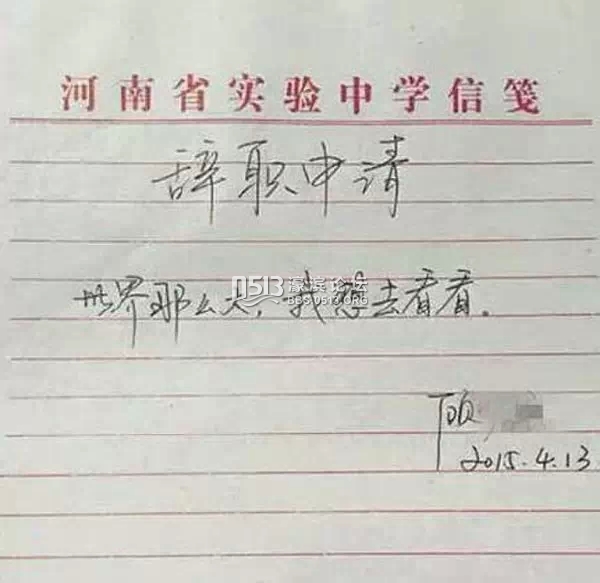 河南省实验中学信笺
辞职申请
世界那么大,我想去看看。
0513 濠滨论坛
BBS.0513.ORG
顾
2015.4.13